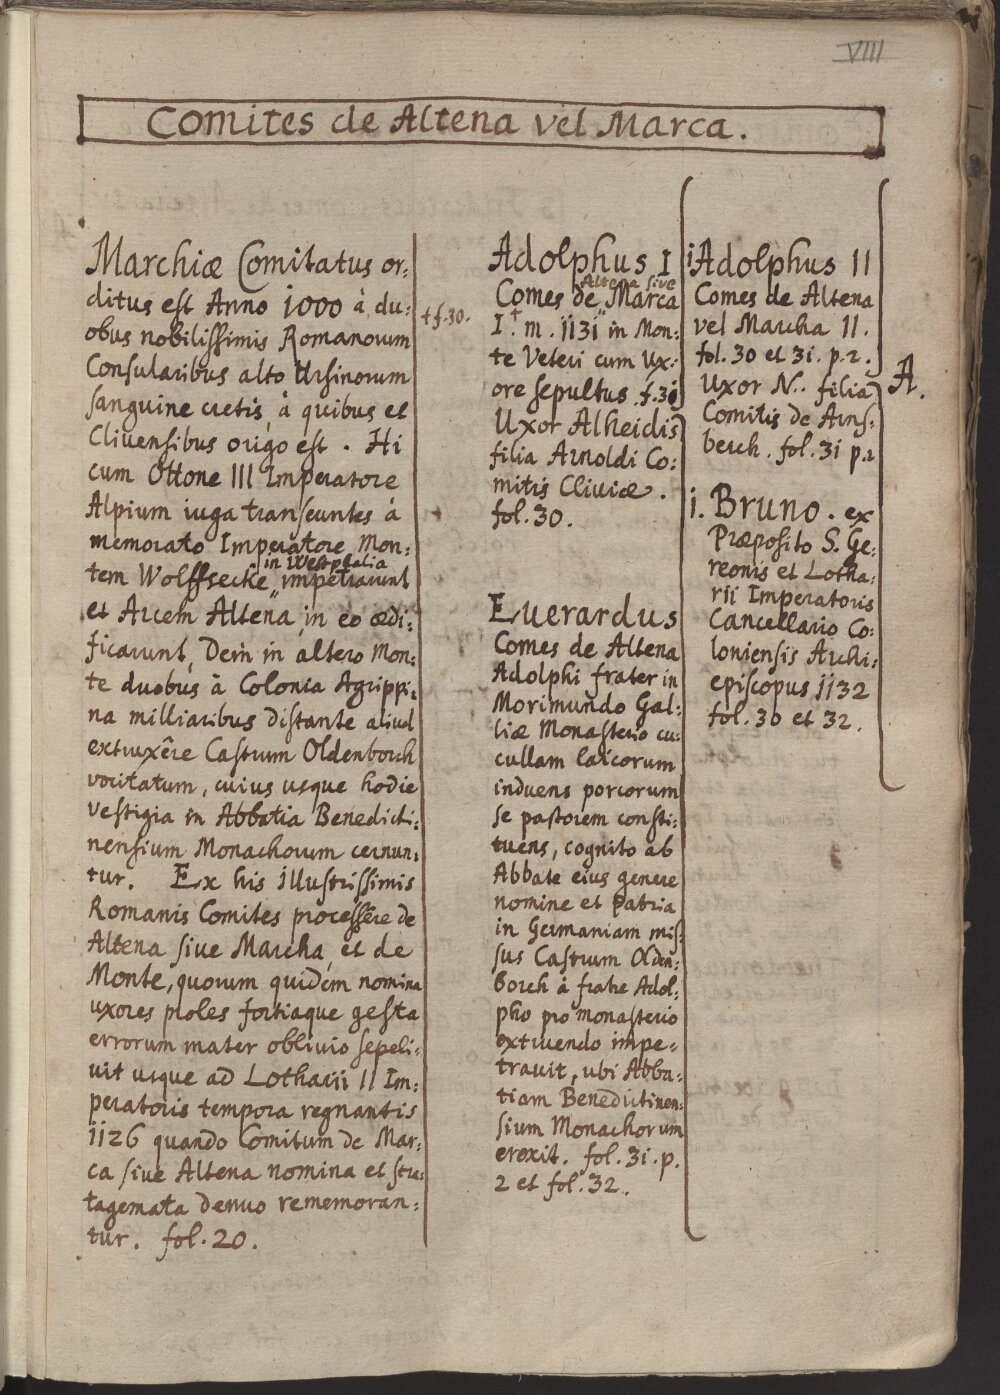 VIII
Comites de Altena vel Marca.
Marchiæ Comitatus or:
ditus est Anno 1000 à du:
obus nobilissimis Romanorum
Consularibus alto Ursinorum
sanguine cretis, à quibus et
Clivensibus origo est. Hi
cum Ottone III Imperatore
Alpium iuga transeuntes à
memorato Imperatore Mon:
in Westphalia
tem Wolffsecke,, impetrarunt
et Arcem Altena in eo ædi:
ficarunt, Dein in altero Mon:
te duobus à Colonia Agrippi:
na milliaribus distante aliud
extruxêre Castrum Oldenborch
vocitatum, cuius usque hodie
vestigia in Abbatia Benedicti:
nensium Monachorum cernun:
tur. Ex his illustrissimis
Romanis Comites processêre de
Altena sive Marcha, et de
Monte, quorum quidem nomina
uxores proles fortiaque gesta
errorum mater oblivio sepeli:
uit usque ad Lotharii II Im:
peratoris tempora regnantis
1126 quando Comitum de Mar:
ca sive Altena nomina et stra:
tagemata denuo rememoran:
tur. fol. 20.
+ f. 30.
Adolphus I
Altena sive
Comes de Marca
I. + m. 1131 in Mon:
te Veteri cum Ux:
ore sepultus. f. 31
Uxor Alheidis
filia Arnoldi Co:
mitis Cliviæ.
fol. 30.
Everardus
Comes de Altena
Adolphi frater in
Morimundo Gal:
liæ Monasterio cu:
cullam laicorum
induens porcorum
se pastorem consti:
tuens, cognito ab
Abbate eius genere
nomine et patria
in Germaniam mis:
sus Castrum Olden:
borch à fratre Adol:
pho pro monasterio
extruendo impe:
travit, ubi Abba:
tiam Benedictinen:
sium Monachorum
erexit. fol. 31. p.
2 et fol. 32.
i Adolphus II
Comes de Altena
vel Marcha II.
fol. 30 et 31. p. 2.
Uxor N. filia
Comitis de Arns:
berch. fol. 31 p. 2
i. Bruno. ex
Præposito S. Ge:
reonis et Lotha:
rii Imperatoris
Cancellario Co:
loniensis Archi:
episcopus 1132
fol. 30 et 32.
A.